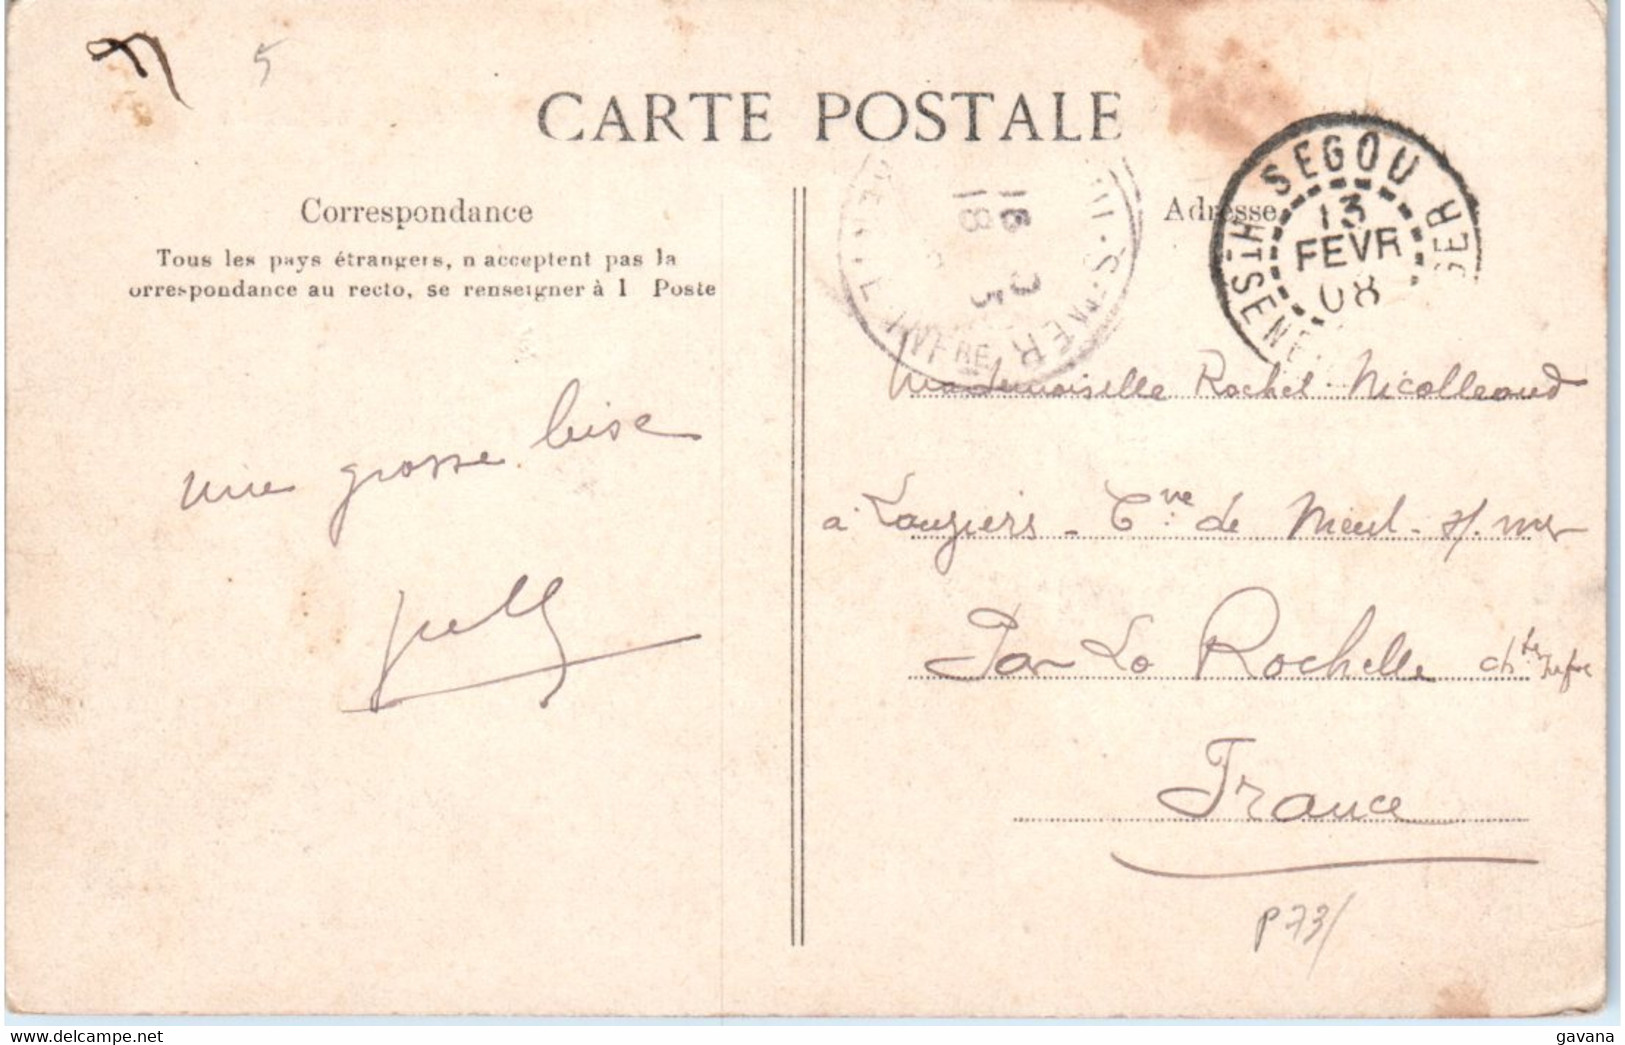 5
CARTE POSTALE
Correspondance
Tous les pays étrangers, n acceptent pas la
orrespondance au recto, se renseigner à l Poste
Adresse
SEGOU
13
FEVR
08
HT SENE
GER
16
18
S-MER
Mademoiselle Rachel Nicolleaud
a Lauziers - Cne de Nieul - s/. mer
Par La Rochelle chte Infre
France
une grosse bise
P 73/
gavana